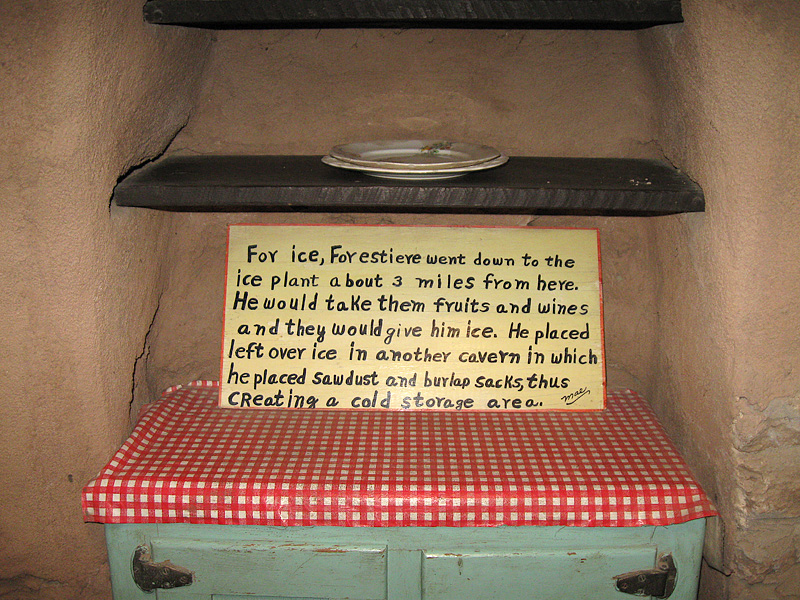 For ice, Forestiere went down to the
ice plant about 3 miles from here.
He would take them fruits and wines
and they would give him ice. He placed
left over ice in another cavern in which
he placed sawdust and burlap sacks, thus
CReating a cold storage area.
mae